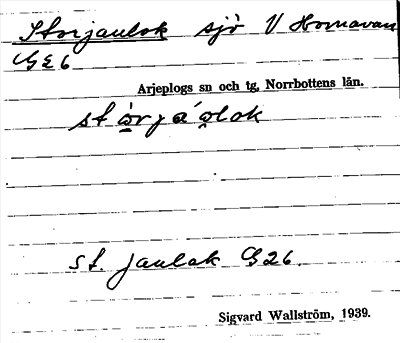 Storjaulok sjö V Hornavan
G26
Arjeplogs sn och tg, Norrbottens län.
st. jaulok G26.
Sigvard Wallström, 1939.